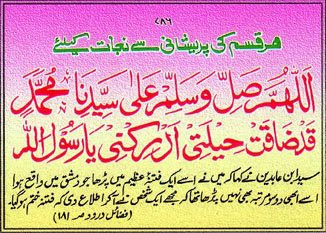 ۷۸۶
ہر قسم کی پریشانی سے نجات کیلئے
اَللّٰهُمَّ صَلِّ وَسَلِّمْ عَلٰی سَیِّدِنَا مُحَمَّدٍ
قَدْ ضَاقَتْ حِیْلَتِیْ اَدْرِكْنِیْ یَا رَسُوْلَ اللّٰهِ
سید ابن عابدین نے کہا کہ میں نے اسے ایک فتنۂ عظیم میں پڑھا جو دمشق میں واقع ہوا
اسے ابھی دو سو مرتبہ بھی نہیں پڑھا تھا کہ مجھے ایک شخص نے آکر اطلاع دی کہ فتنہ ختم ہوگیا۔
(فضائل درود صر ۱۸۱)